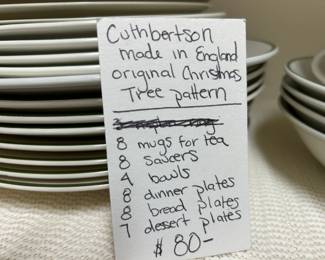 Cuthbertson
made in England
original Christmas
Tree pattern
8 mugs for tea
8 saucers
4 bowls
8 dinner plates
8 bread plates
7 dessert plates
$80-